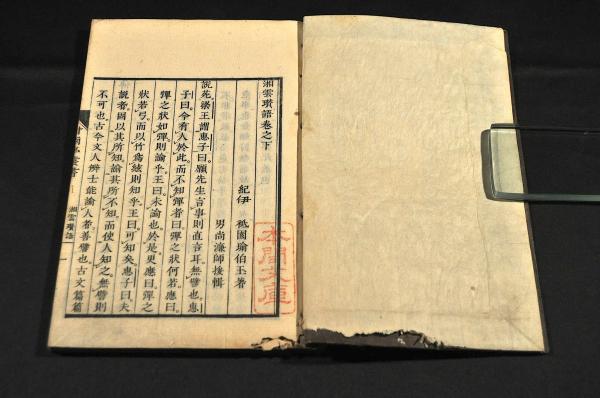 湘雲瓚語卷之下
紀伊 祗園瑜伯玉著
男尚濂師援輯
說苑梁王謂惠子曰願先生言事則直言耳無譬也惠
子曰今有人於此而不知彈者曰彈之狀何若應曰
彈之狀如彈則諭乎王曰未諭也於是更應曰彈之
狀若弓而以竹爲絃則知乎王曰可知矣惠子曰夫
說者固以其所知諭其所不知而使人知之無譬則
不可也古今文人辨士能諭人者善譬也古文篇篇
湘雲瓚語
一
本間文庫